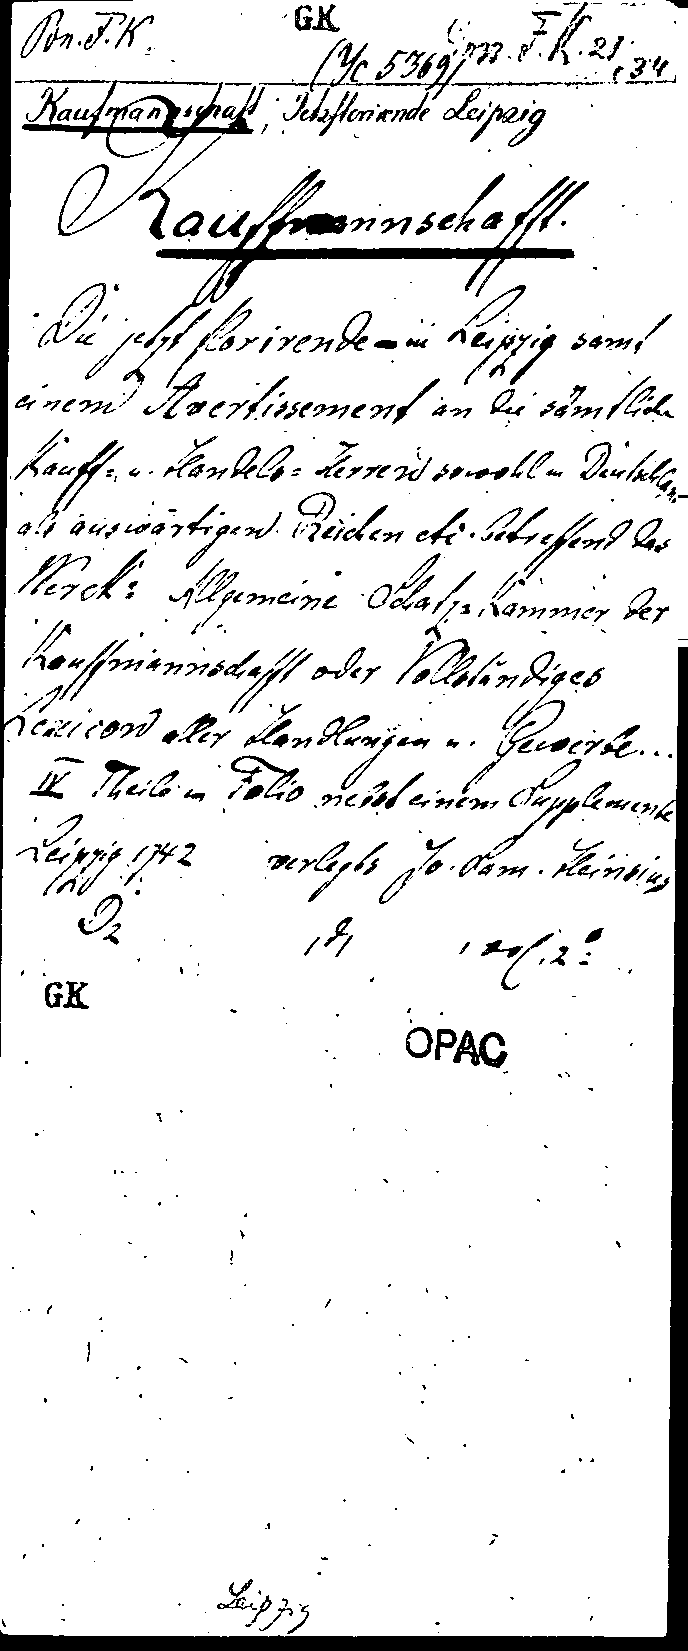 Pon. F. K.
GK
(Yc 5369)
Kaufmannschaft, Jetztflorirende Leipzig
Kauffmannschafft.
Die jetzt florirende in Leipzig samt
einem Avertissement an die sämtliche
Kauff- u. Handels-Herren sowohl in Deutschland
als auswärtigen Reichen etc. betreffend das
Werck: Allgemeine Schatz-Kammer der
Kauffmannschafft oder Vollständiges
Lexicon aller Handlungen u. Gewerbe...
IV Theile in Folio nebst einem Supplemente
Leipzig 1742 verlegts Jo. Sam. Heinsius
2°
GK
OPAC
Leipzig